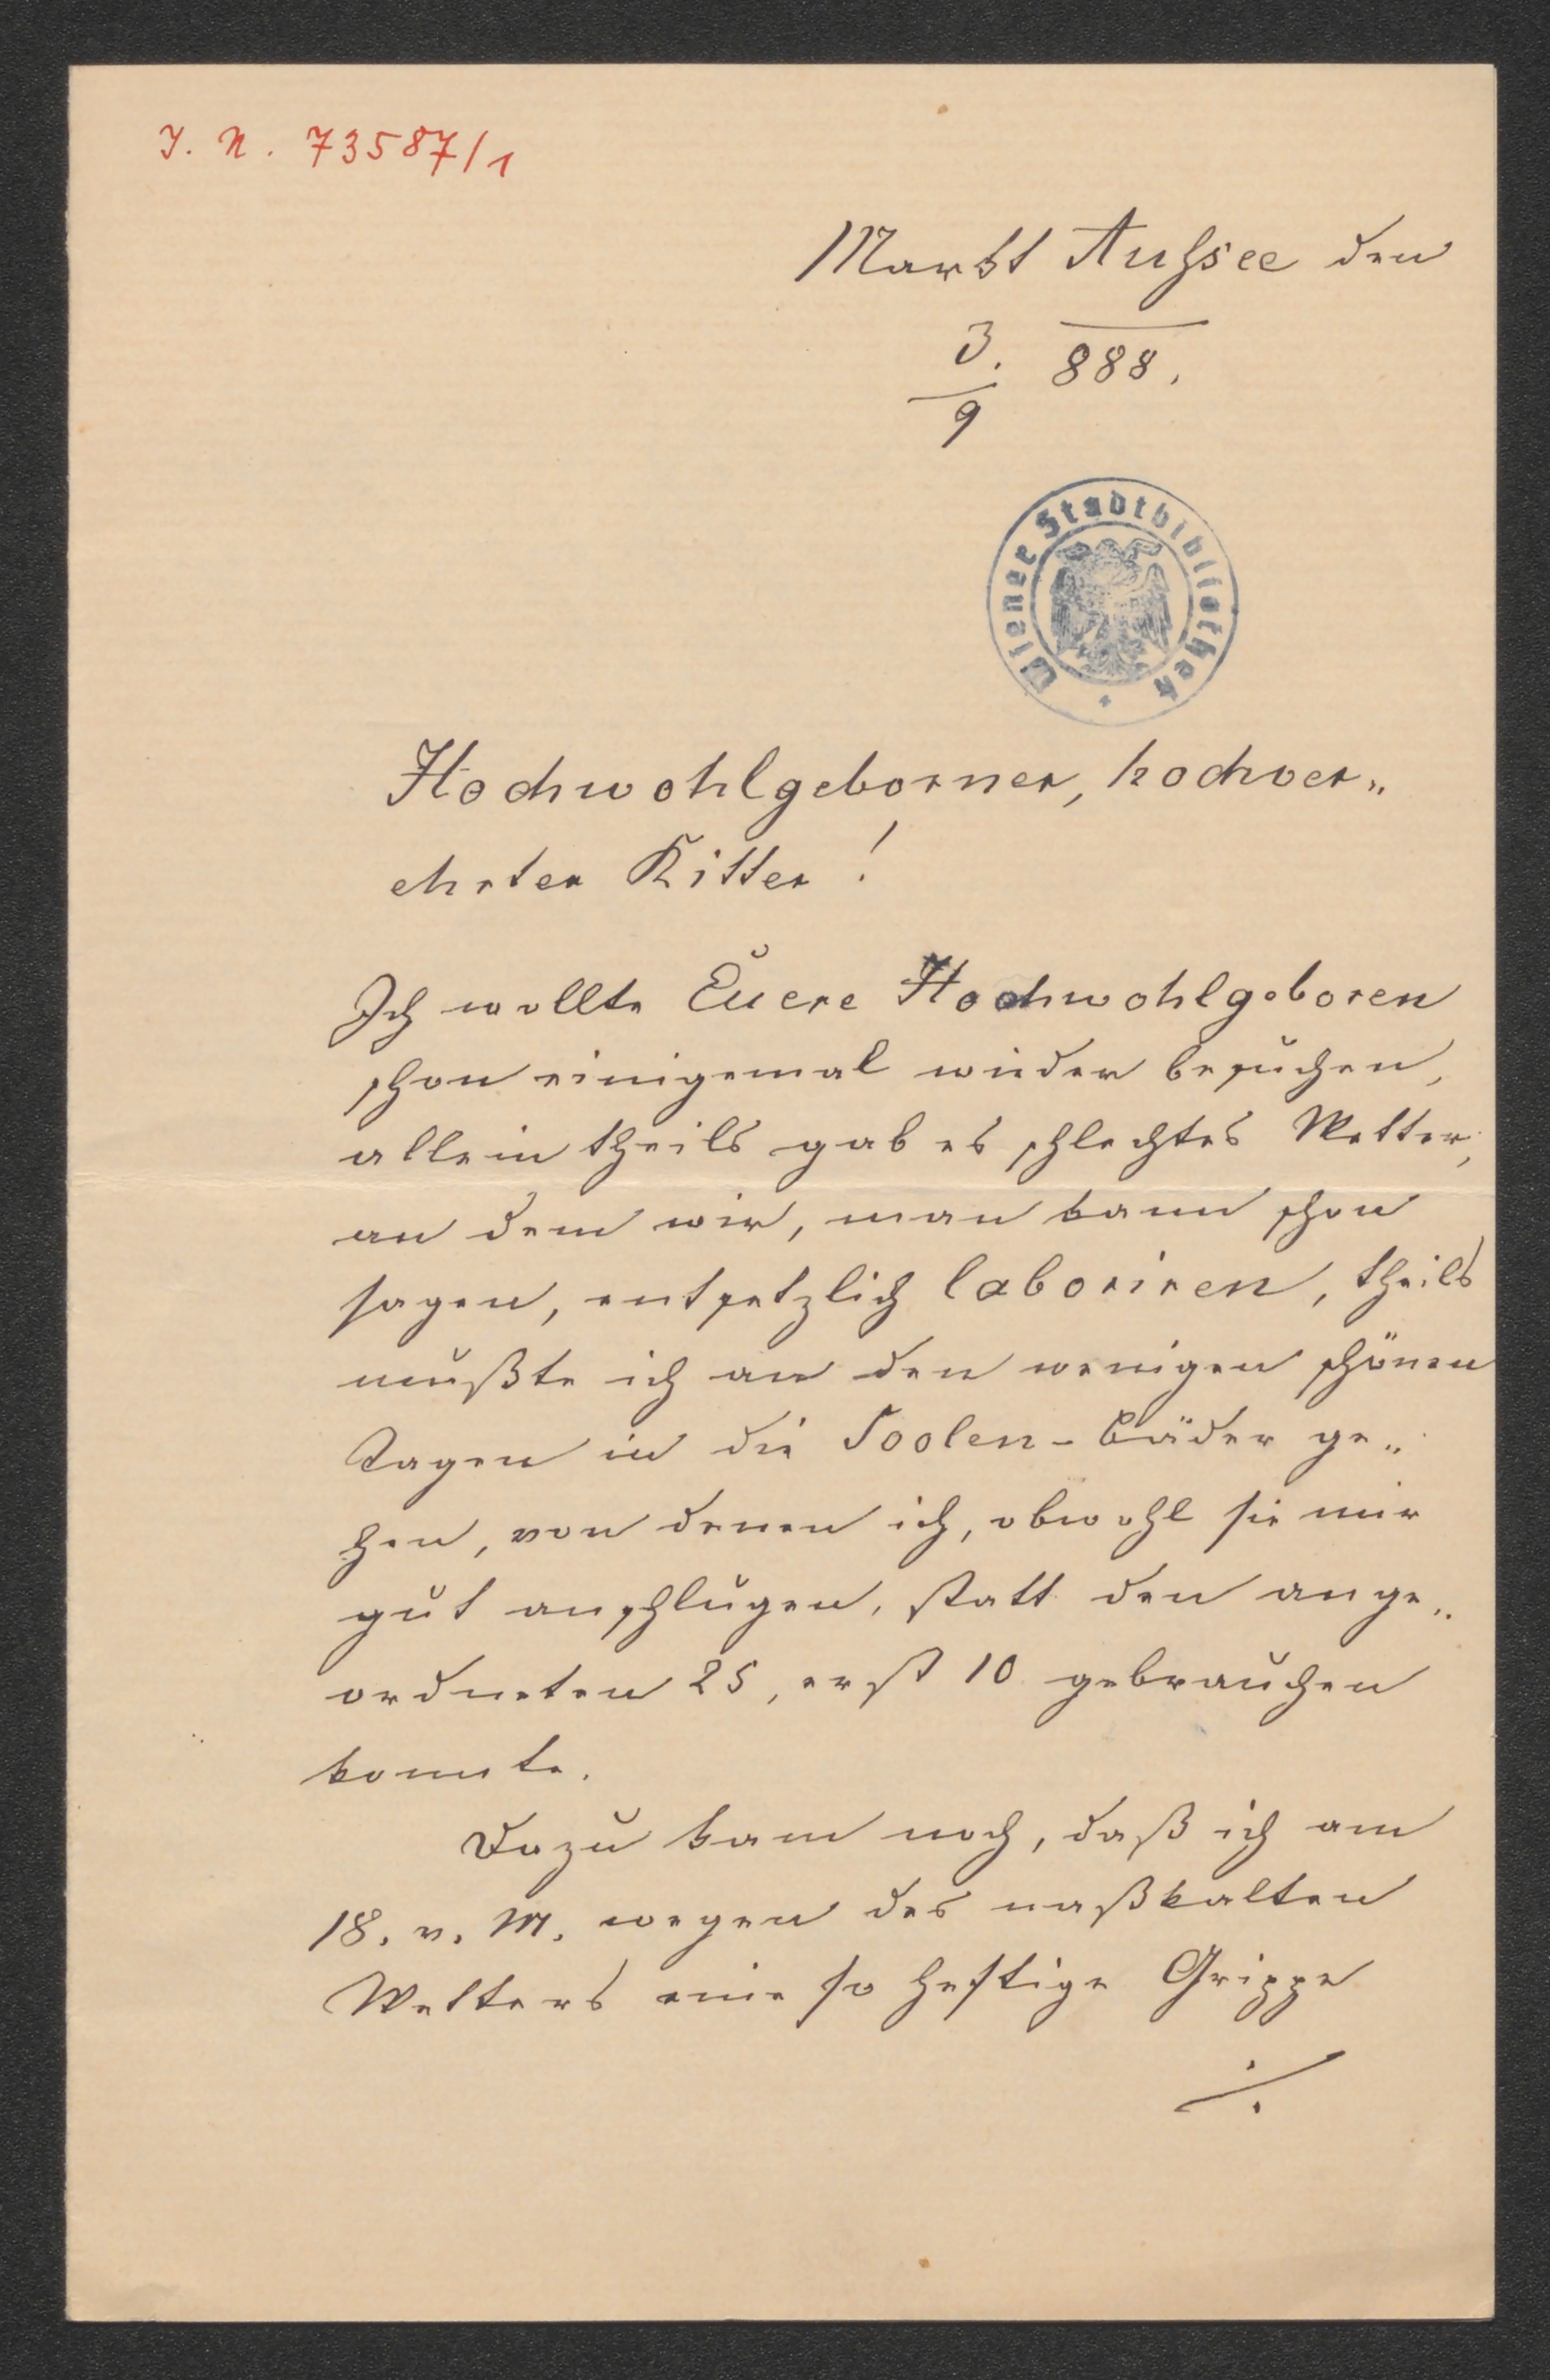 J. N. 73587/1
Markt Außsee den
3./9 888.
Wiener Stadtbibliothek
Hochwohlgeborner, hochver„
ehrter Ritter!
Ich wollte Euere Hochwohlgeboren
schon einigemal wieder besuchen,
allein theils gab es schlechtes Wetter,
an dem wir, man kann schon
sagen, entsetzlich laboriren, theils
mußte ich an den wenigen schönen
Tagen in die Soolen-Bäder ge„
hen, von denen ich, obwohl sie mir
gut anschlugen, statt den ange„
ordneten 25, erst 10 gebrauchen
konnte.
Dazu kam noch, daß ich am
18. v. M. wegen des naßkalten
Wetters eine so heftige Grippe
./.